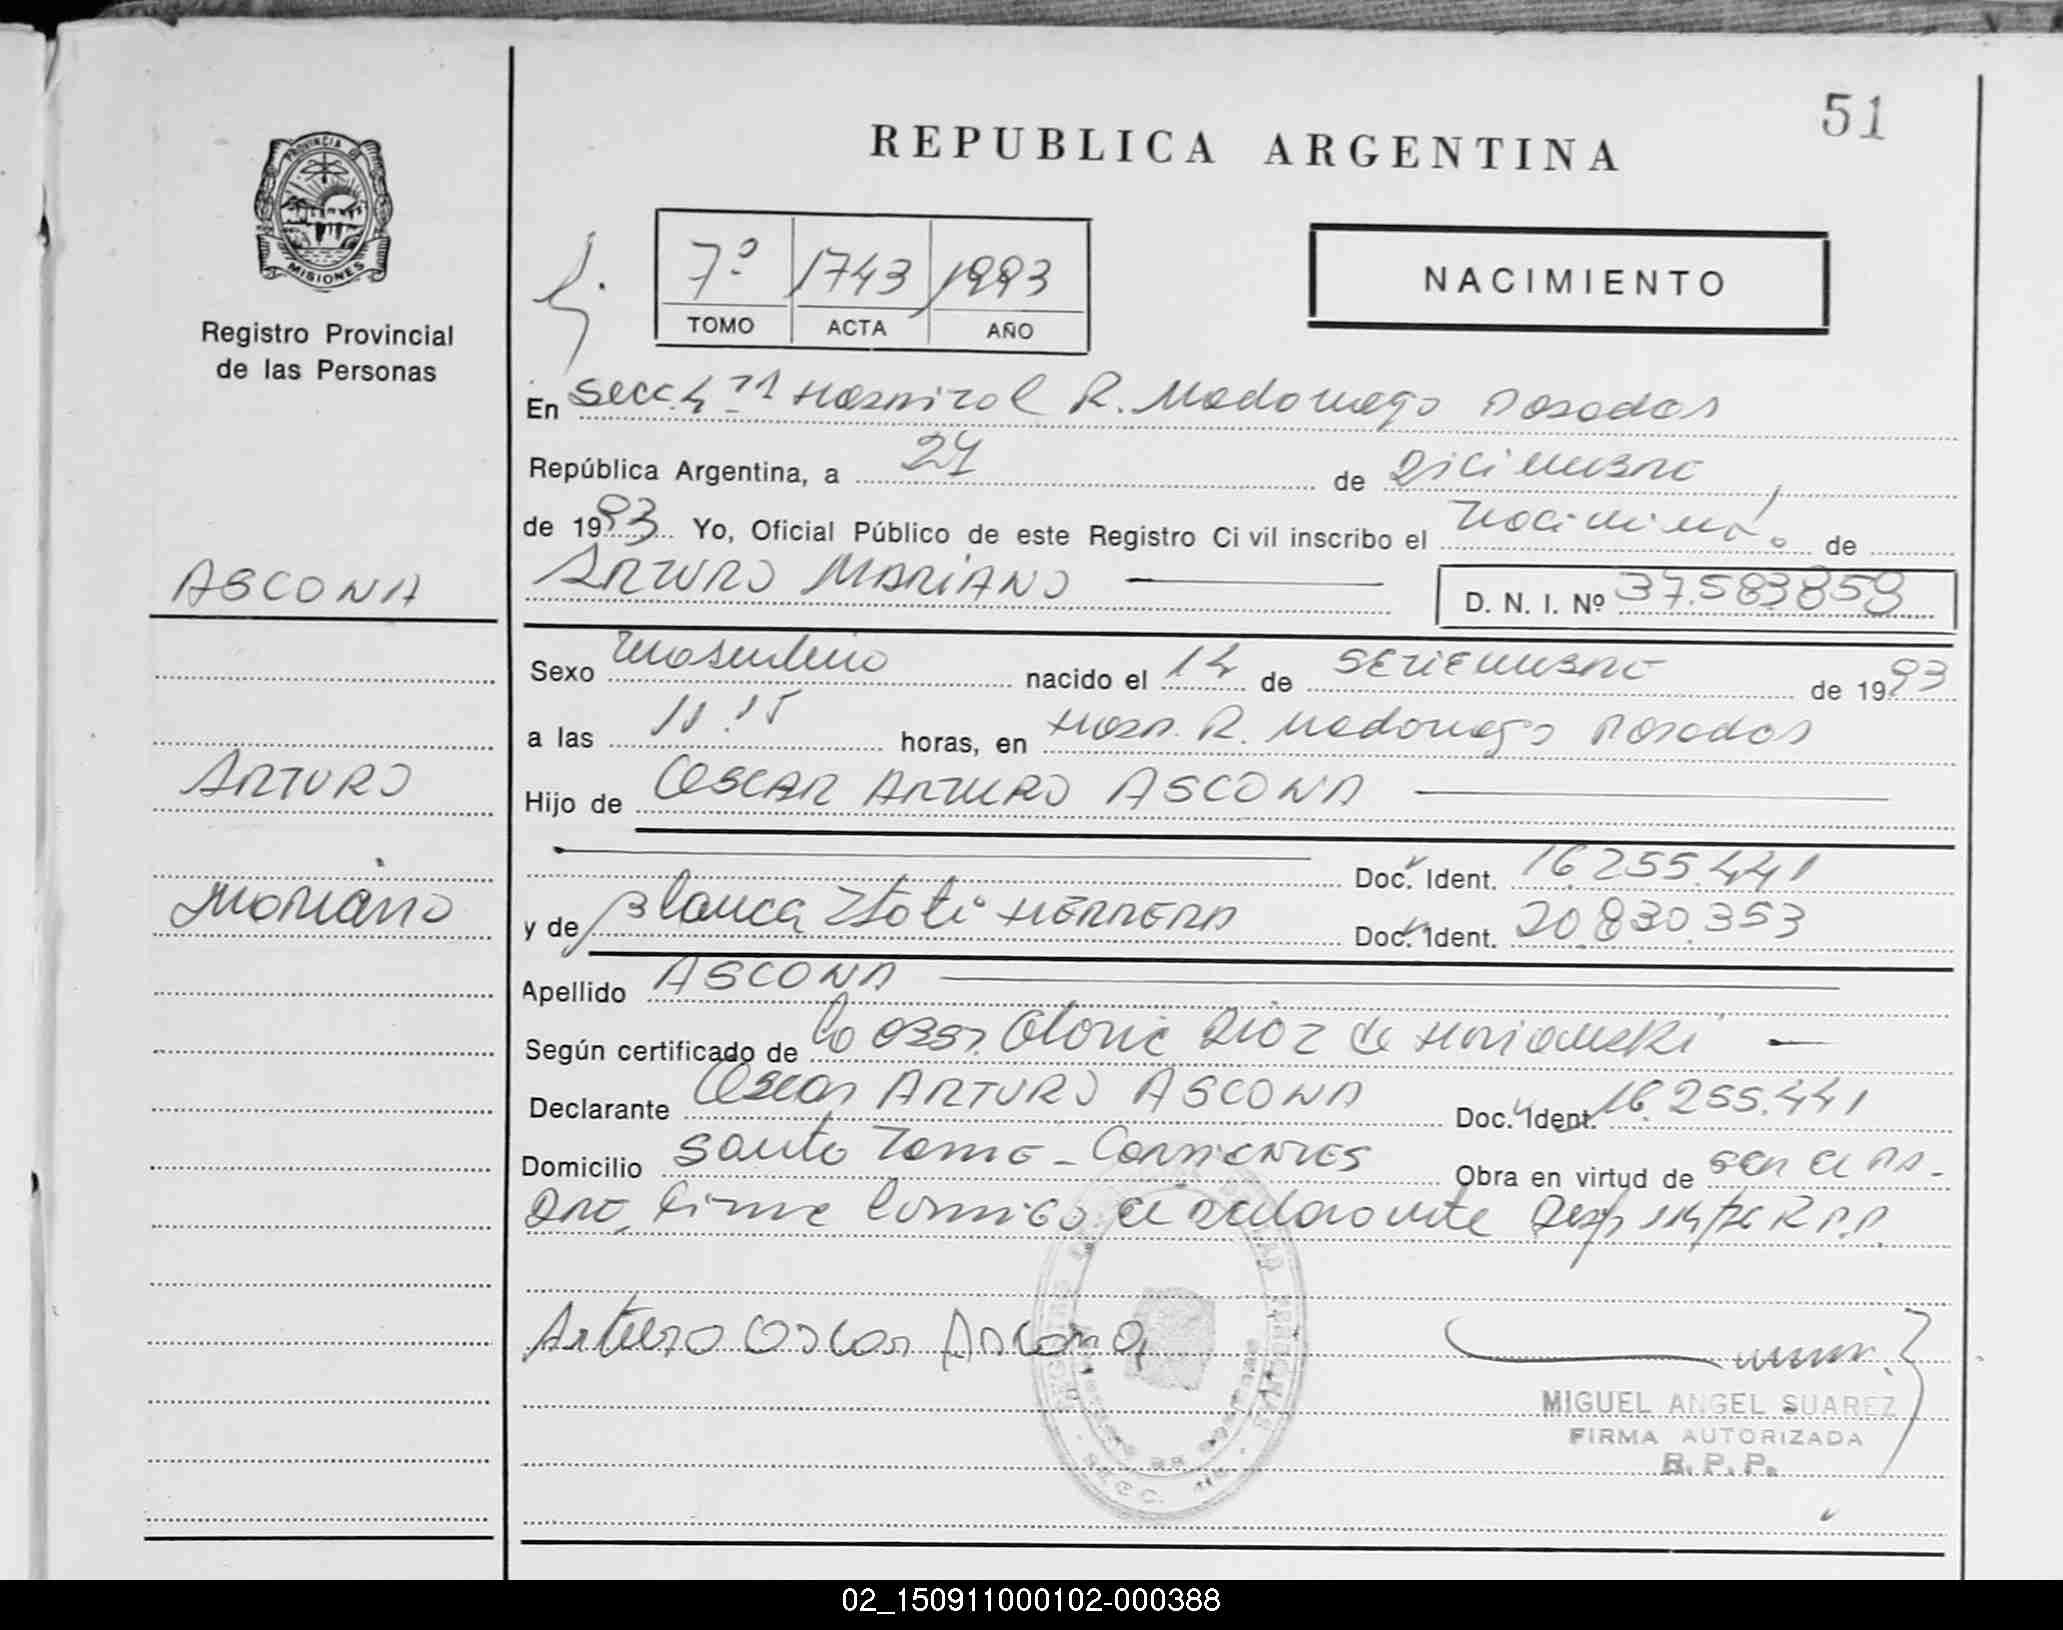 51
REPUBLICA ARGENTINA
PROVINCIA DE
MISIONES
Registro Provincial
de las Personas
7º 1743 1993
TOMO ACTA AÑO
NACIMIENTO
En Secc. Hospital R. Madariaga Posadas
República Argentina, a 24 de Diciembre
de 1993 Yo, Oficial Público de este Registro Civil inscribo el Nacimient. de
ASCONA
ARTURO MARIANO
D. N. I. Nº 37.583.859
Sexo Masculino nacido el 14 de SETIEMBRE de 1993
a las 11.15 horas, en Hosp. R. Madariaga Posadas
ARTURO
Hijo de OSCAR ARTURO ASCONA
Doc. Ident. 16.255.441
Mariano
y de Blanca HERRERA Doc. Ident. 20.830.353
Apellido ASCONA
Según certificado de la Obst. Diaz de
Declarante Oscar ARTURO ASCONA Doc. Ident. 16.255.441
Domicilio Santo Tome - CORRIENTES Obra en virtud de ser el PA-
DRE, firma conmigo el declarante
Arturo Oscar Ascona
MIGUEL ANGEL SUAREZ
FIRMA AUTORIZADA
R. P. P.
02_150911000102-000388